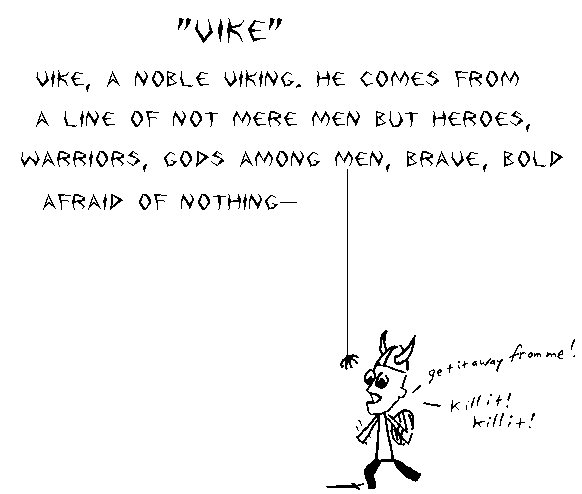 "VIKE"
VIKE, A NOBLE VIKING. HE COMES FROM
A LINE OF NOT MERE MEN BUT HEROES,
WARRIORS, GODS AMONG MEN, BRAVE, BOLD
AFRAID OF NOTHING—
get it away from me!
Kill it!
kill it!